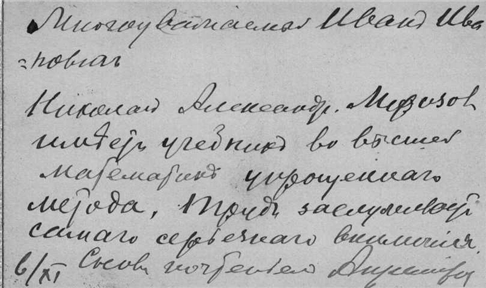 Многоуважаемый Иванъ Ива
=новичъ
Николай Александр. Морозов
имѣетъ учебникъ по высшей
математикѣ упрощеннаго
метода, Трудъ заслуживаетъ
самаго серьезнаго вниманія.
6/XI